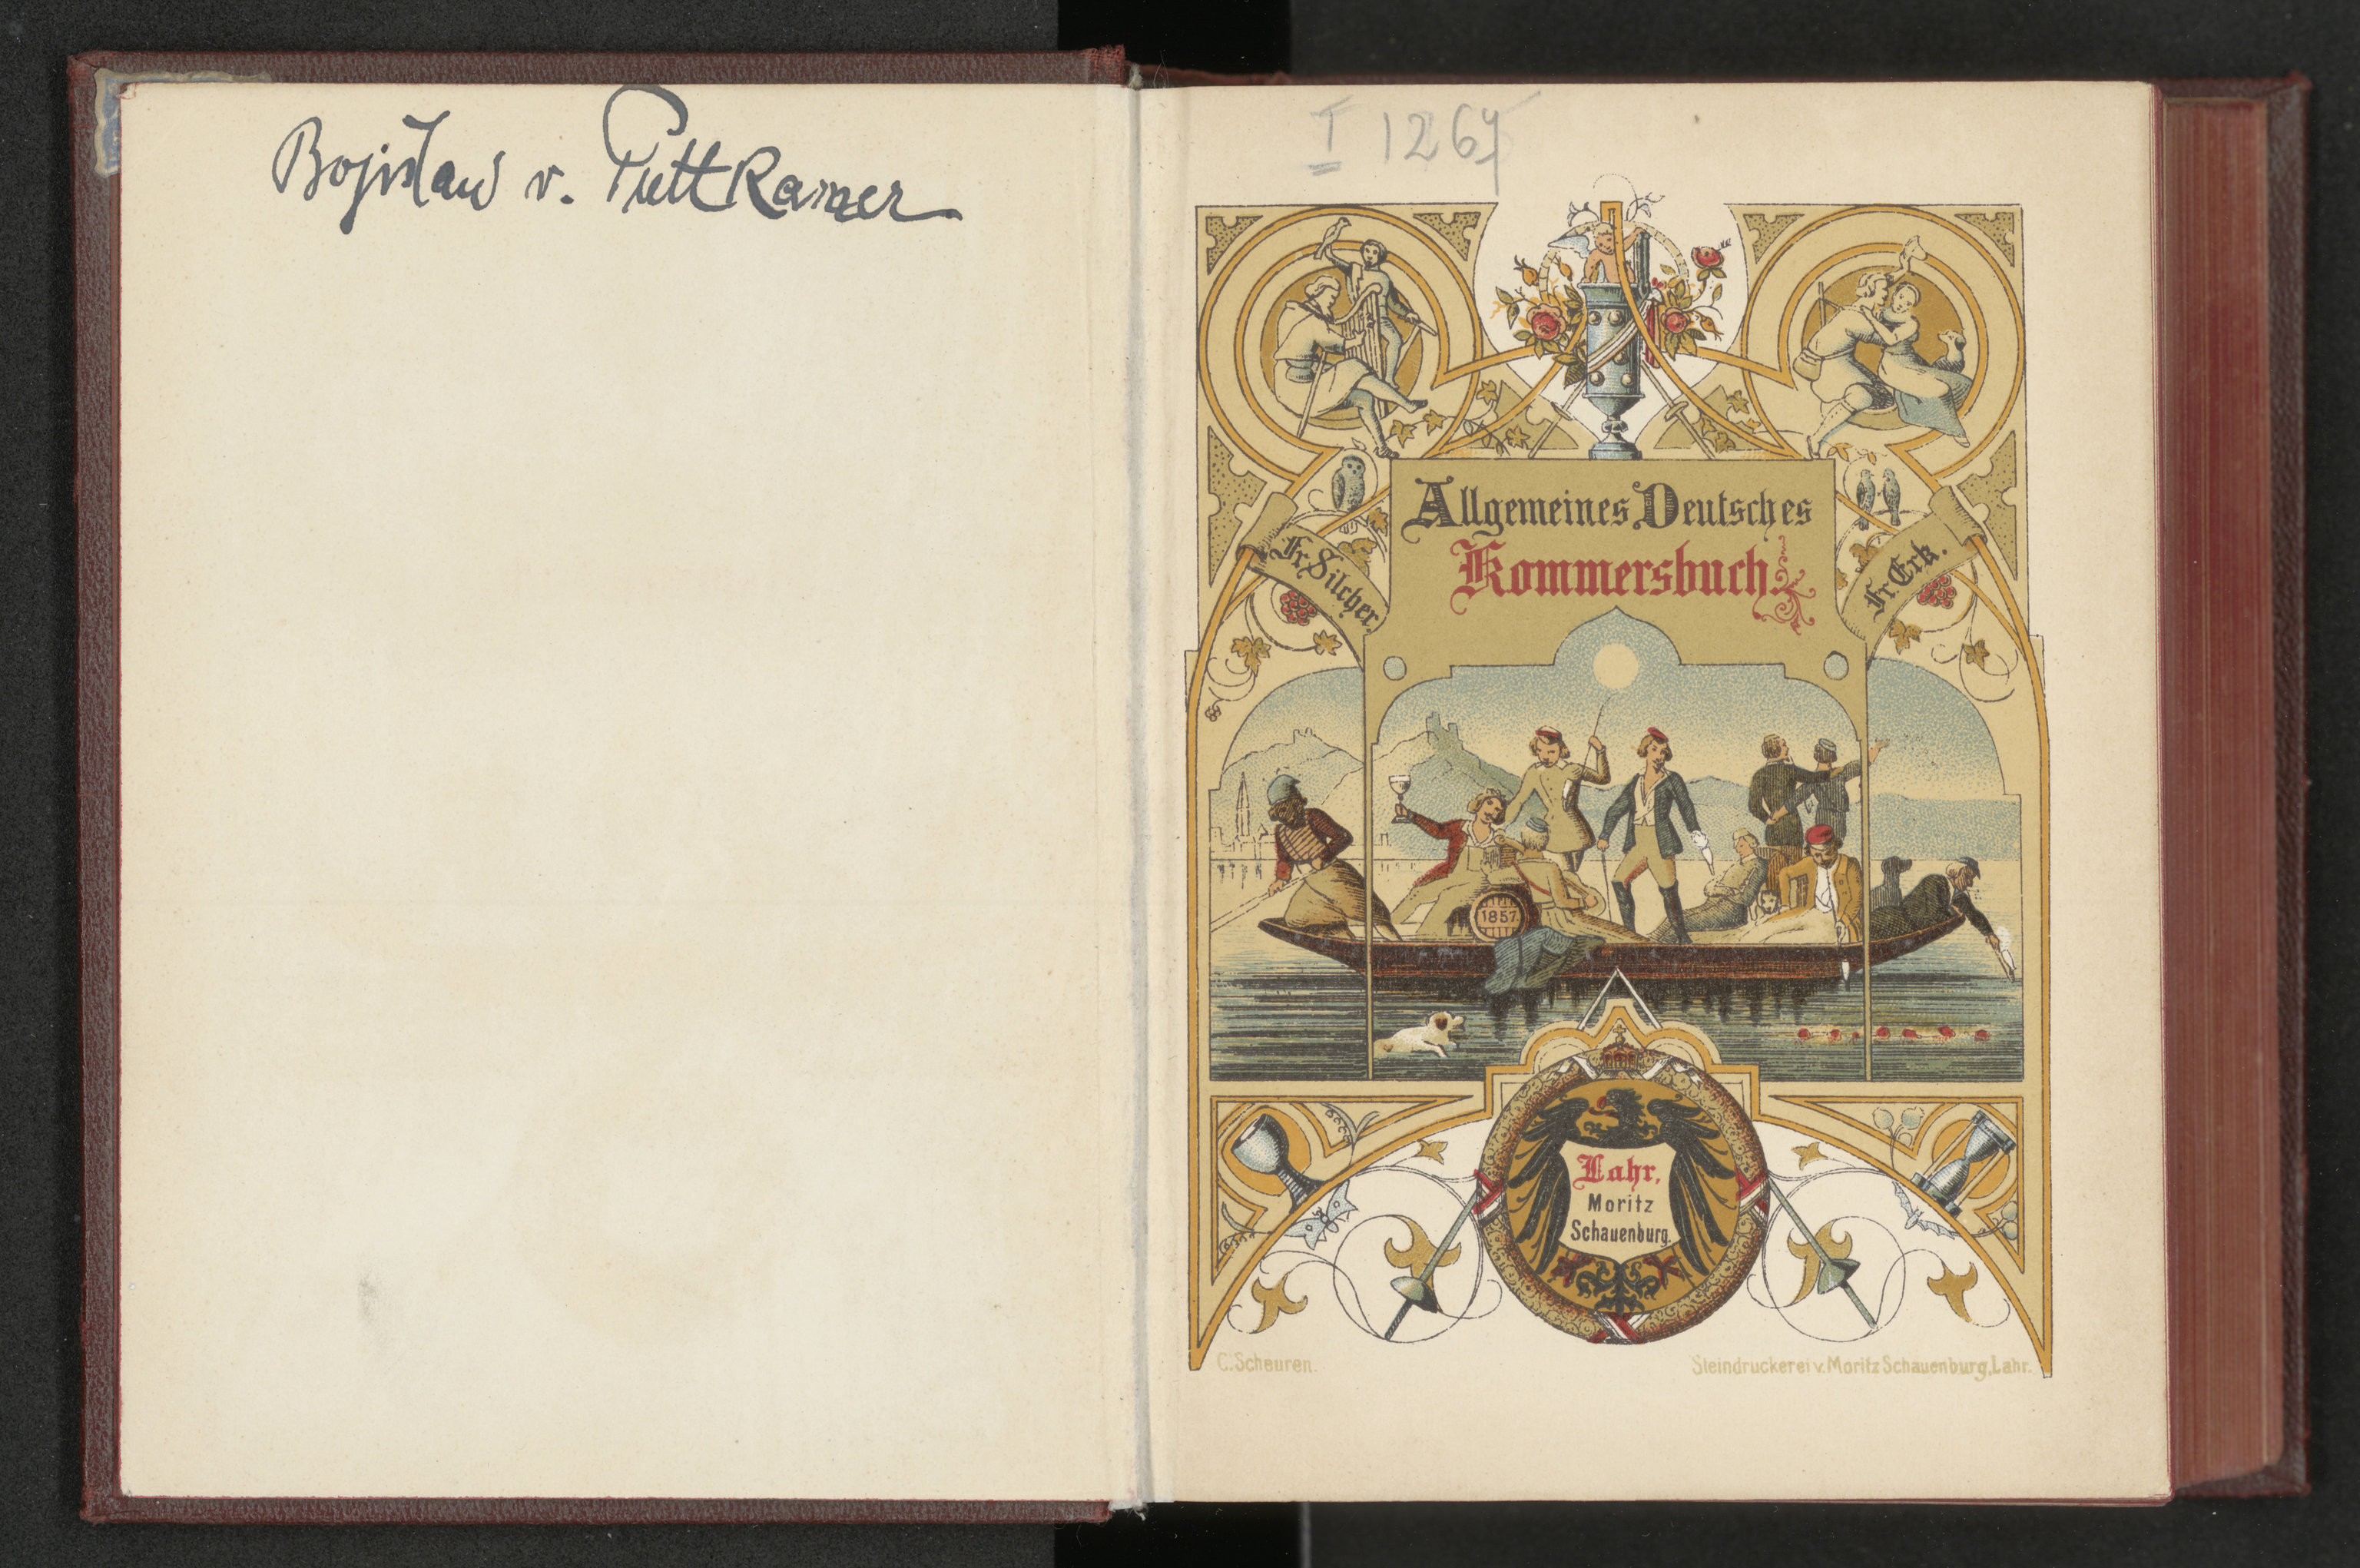 Bogislaw v. Puttkamer
I 1267
Allgemeines Deutsches
Kommersbuch.
Fr. Silcher.
Fr. Erk.
1857.
Lahr,
Moritz
Schauenburg.
C. Scheuren.
Steindruckerei v. Moritz Schauenburg, Lahr.